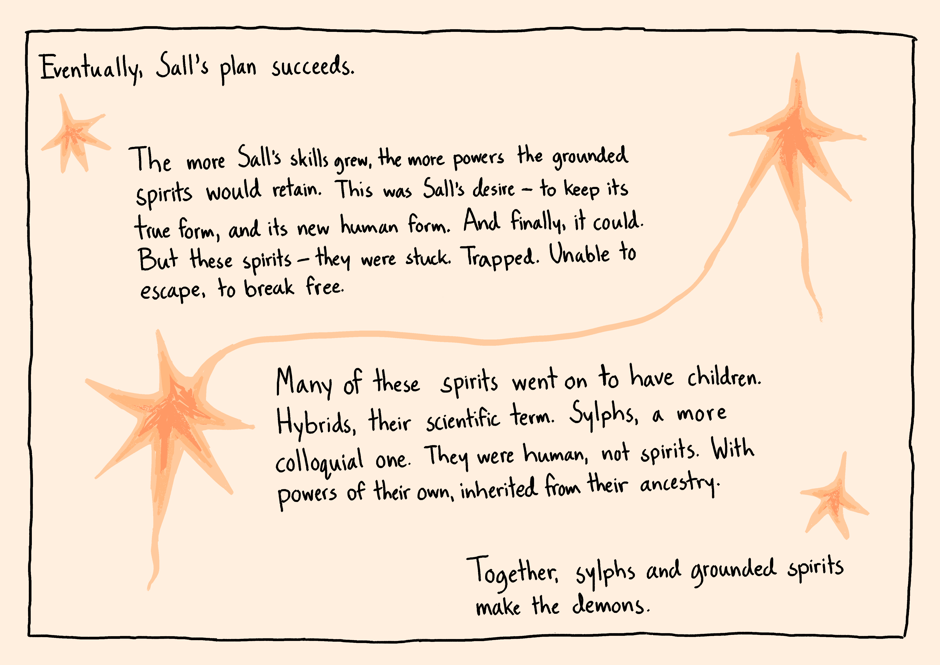 Eventually, Sall's plan succeeds.
The more Sall's skills grew, the more powers the grounded
spirits would retain. This was Sall's desire – to keep its
true form, and its new human form. And finally, it could.
But these spirits – they were stuck. Trapped. Unable to
escape, to break free.
Many of these spirits went on to have children.
Hybrids, their scientific term. Sylphs, a more
colloquial one. They were human, not spirits. With
powers of their own, inherited from their ancestry.
Together, sylphs and grounded spirits
make the demons.